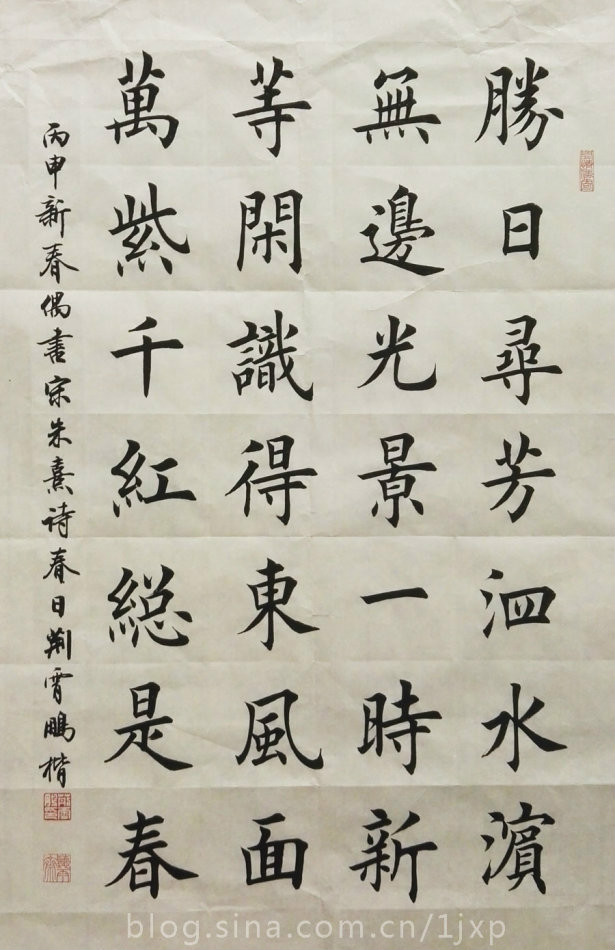 勝日尋芳泗水濵
無邊光景一時新
等閑識得東風面
萬紫千紅緫是春
丙申新春偶書宋朱熹诗春日荆霄鵬楷
blog.sina.com.cn/1jxp